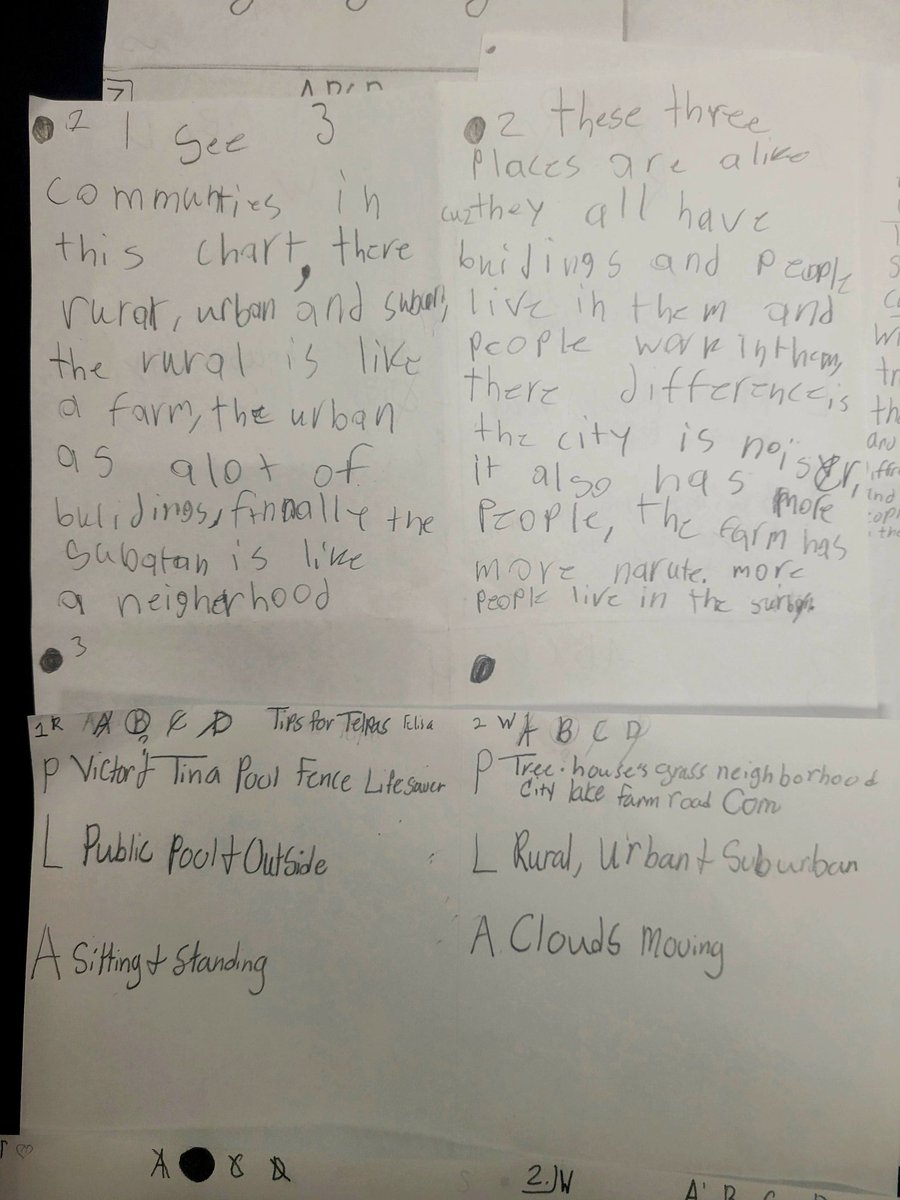 2 I see 3
communties in
this chart, there
rurar, urban and suburn,
the rural is like
a farm, the urban
as alot of
bulidings, finnally the
Subartan is like
a neigherhood
3
2 these three
Places are alike
cuz they all have
buidings and people
live in them and
people work in them,
there difference is
the city is noisyer,
it also has more
People, the farm has
more narute. more
people live in the
1R A B C D Tips for Telpas Elisa
P Victor & Tina Pool Fence Lifesaver
L Public Pool & Outside
A Sitting & Standing
2 W A B C D
P Tree. house's grass neighborhood
City lake farm road Com
L Rural, Urban & Suburban
A. Clouds Moving
2.)W